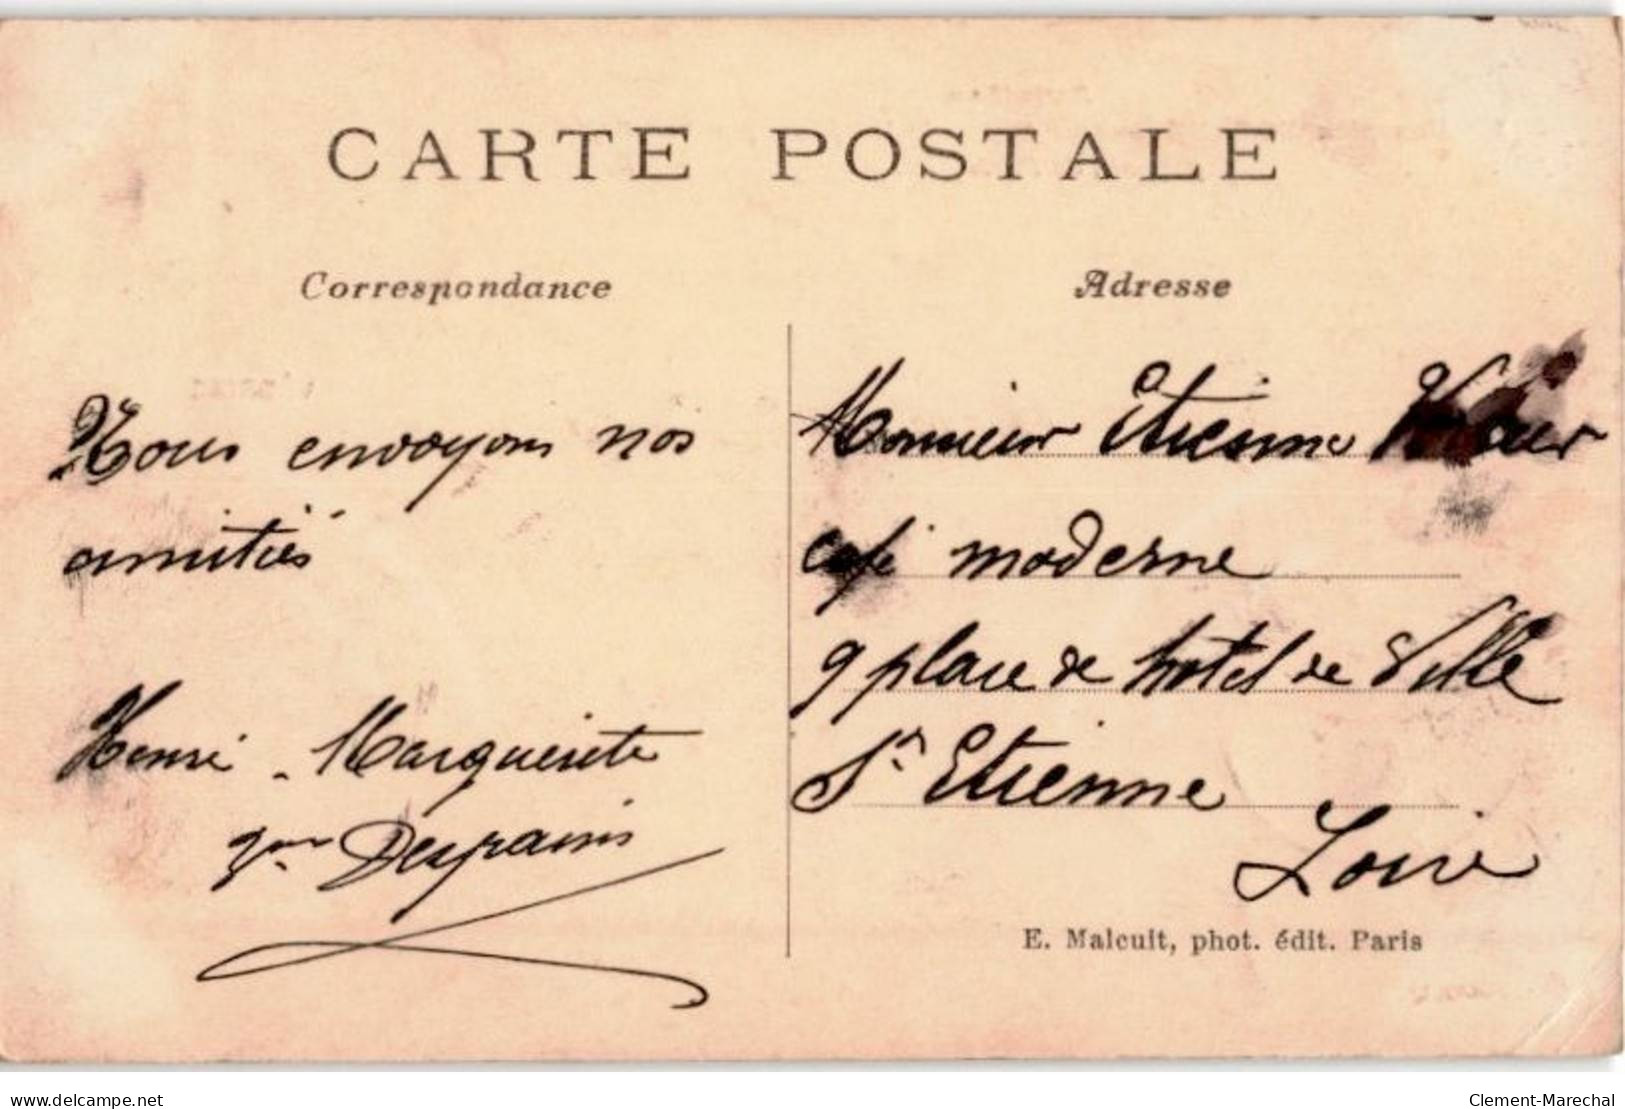 CARTE POSTALE
Correspondance
Nous envoyons nos
amitiés
Henri - Marguerite
Despains
Adresse
Monsieur Etienne
café moderne
9 place de hotel de Ville
St Etienne
Loire
E. Malcuit, phot. édit. Paris
delcampe.net
Clement-Marechal